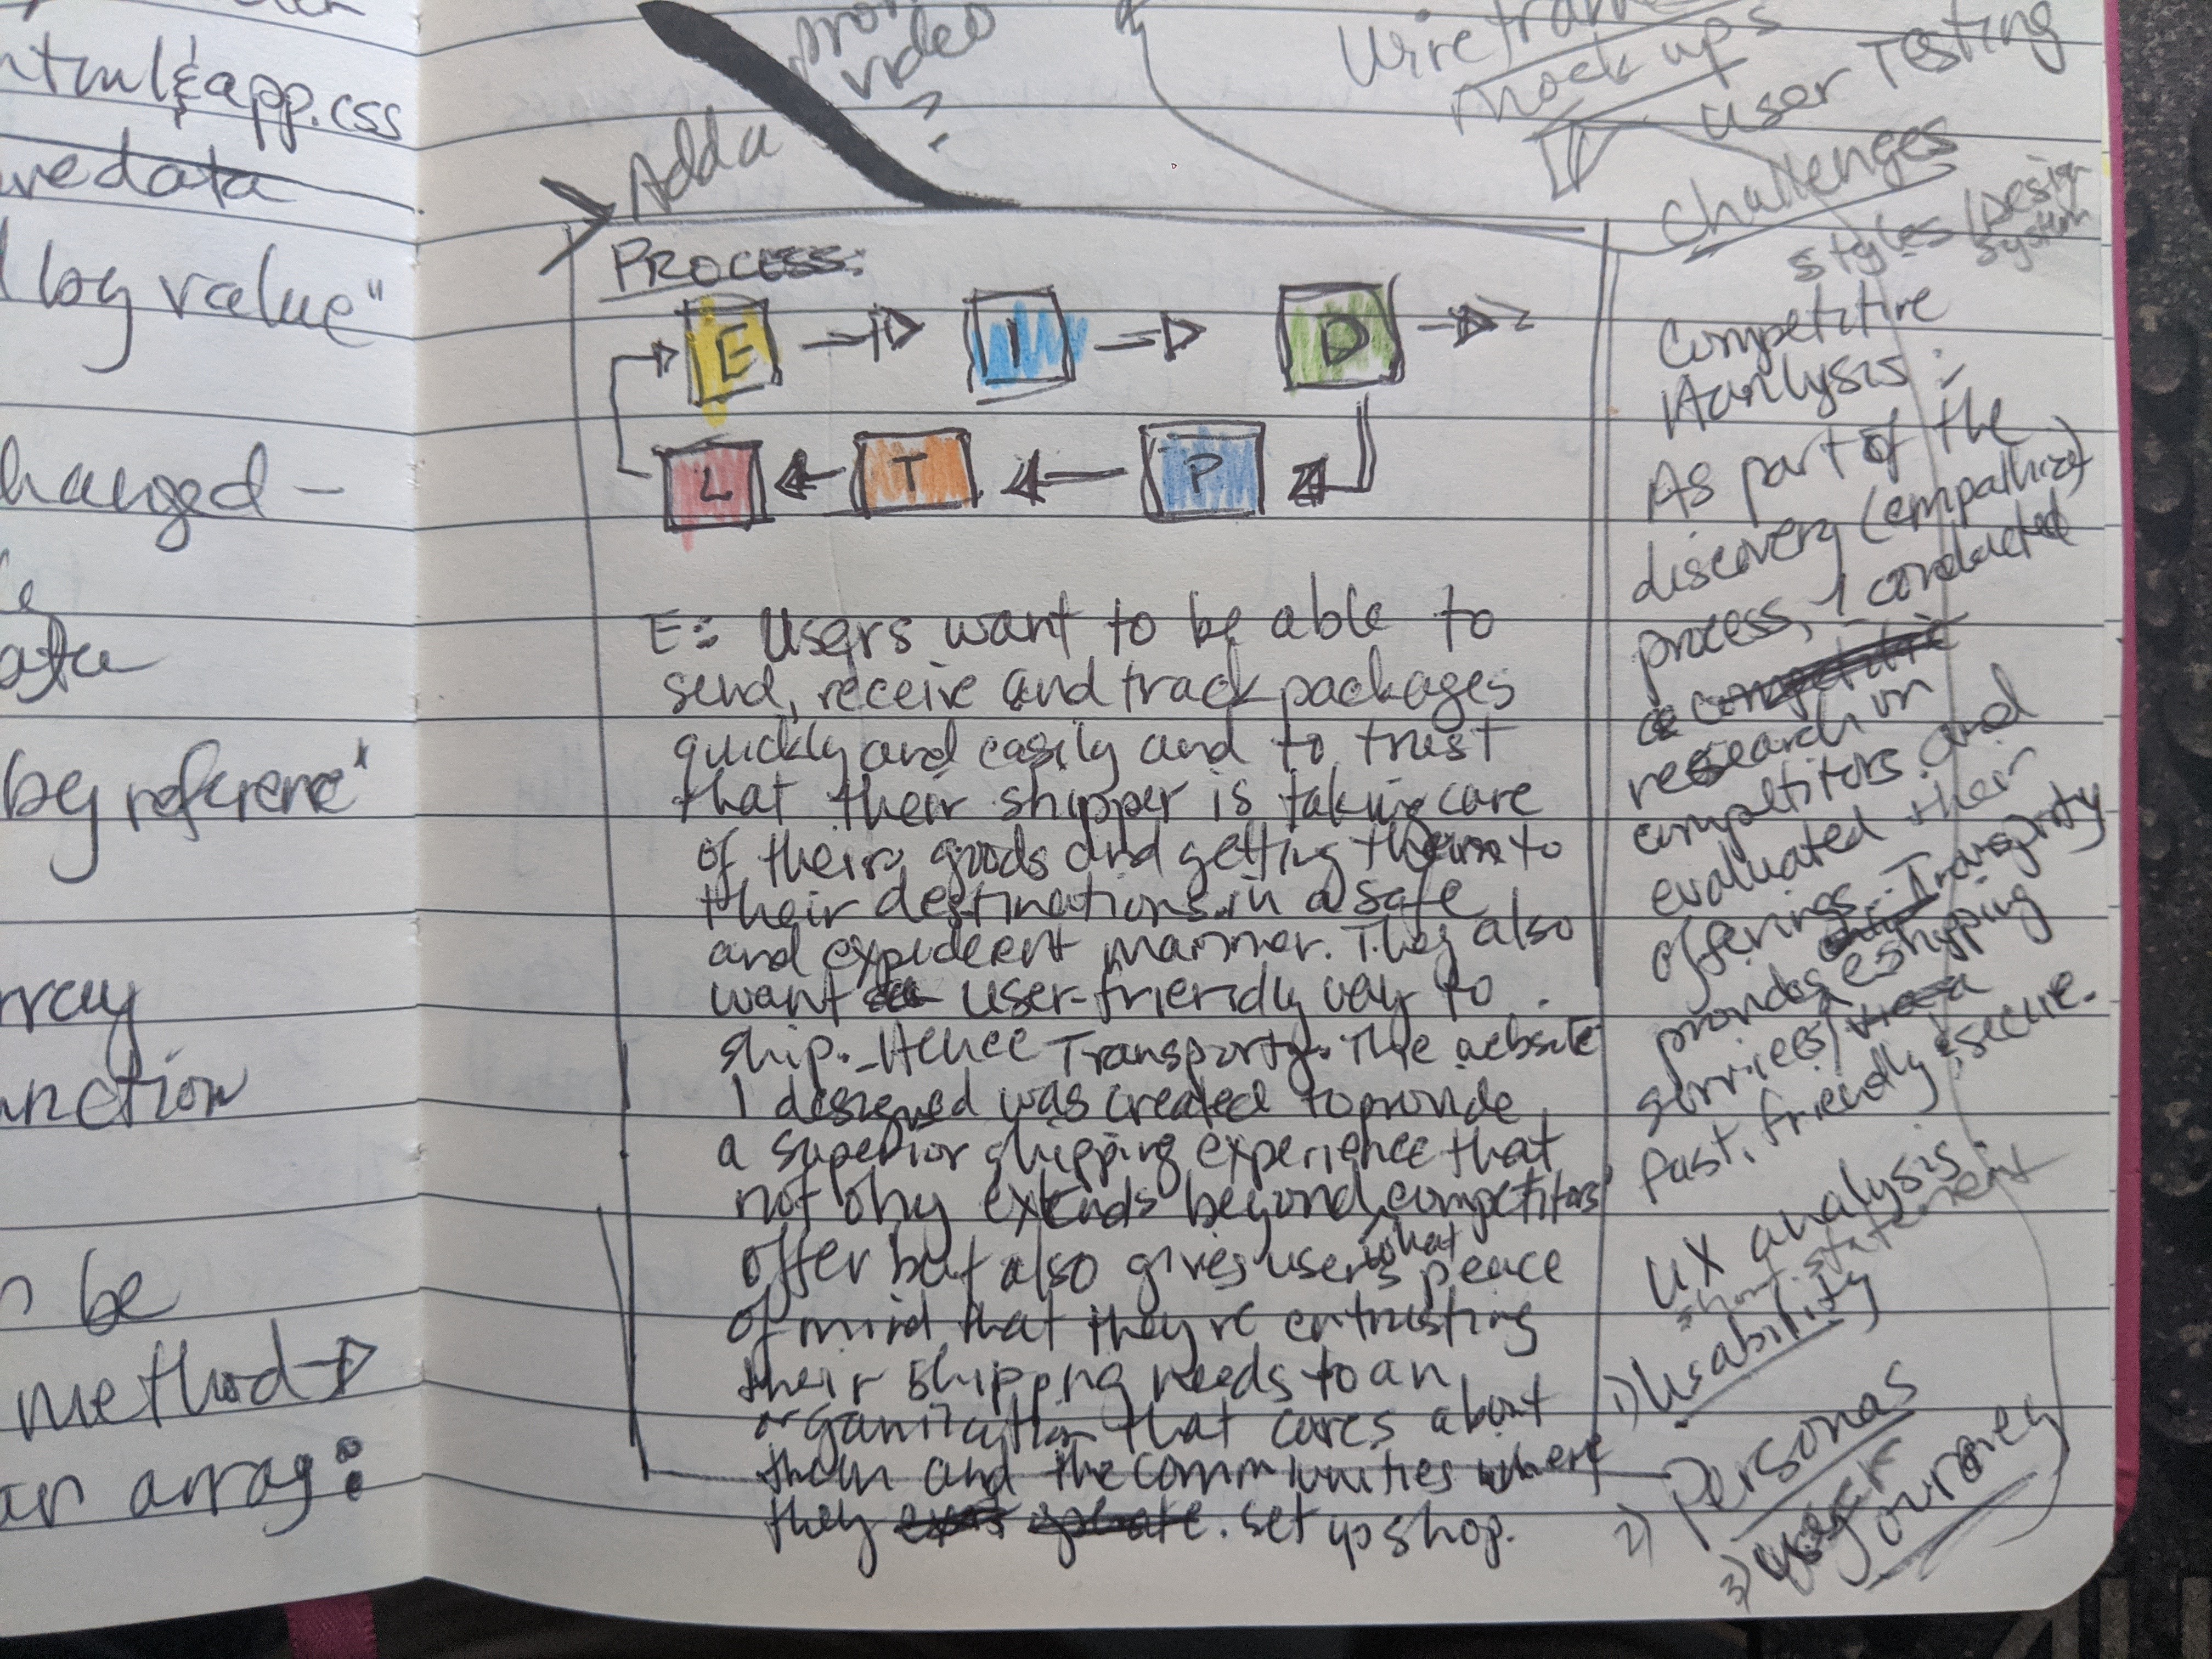 html & app.css
data
by value"
changed -
data
by reference"
be
method
an array:
Add a
video
?
mock ups
User Testing
Challenges
Styles/Design
System
PROCESS:
E
I
D
L
T
P
E: Users want to be able to
send, receive and track packages
quickly and easily and to trust
that their shipper is taking care
of their goods and getting them to
their destinations in a safe
and expedient manner. They also
want user-friendly way to
ship. Hence Transporty. The website
I designed was created to provide
a superior shipping experience that
not only extends beyond what competitors
offer but also gives users peace
of mind that they're entrusting
their shipping needs to an
organization that cares about
them and the communities where
they exist operate. set up shop.
Competitive
Aanlysis:
As part of the
discovery (empathize)
process, I conducted
a competitive
research on
competitors and
evaluated their
offerings. Transporty
provides shipping
services
fast, friendly & secure.
UX analysis
short statement
1) Usability
2) Personas
3) User
Journey